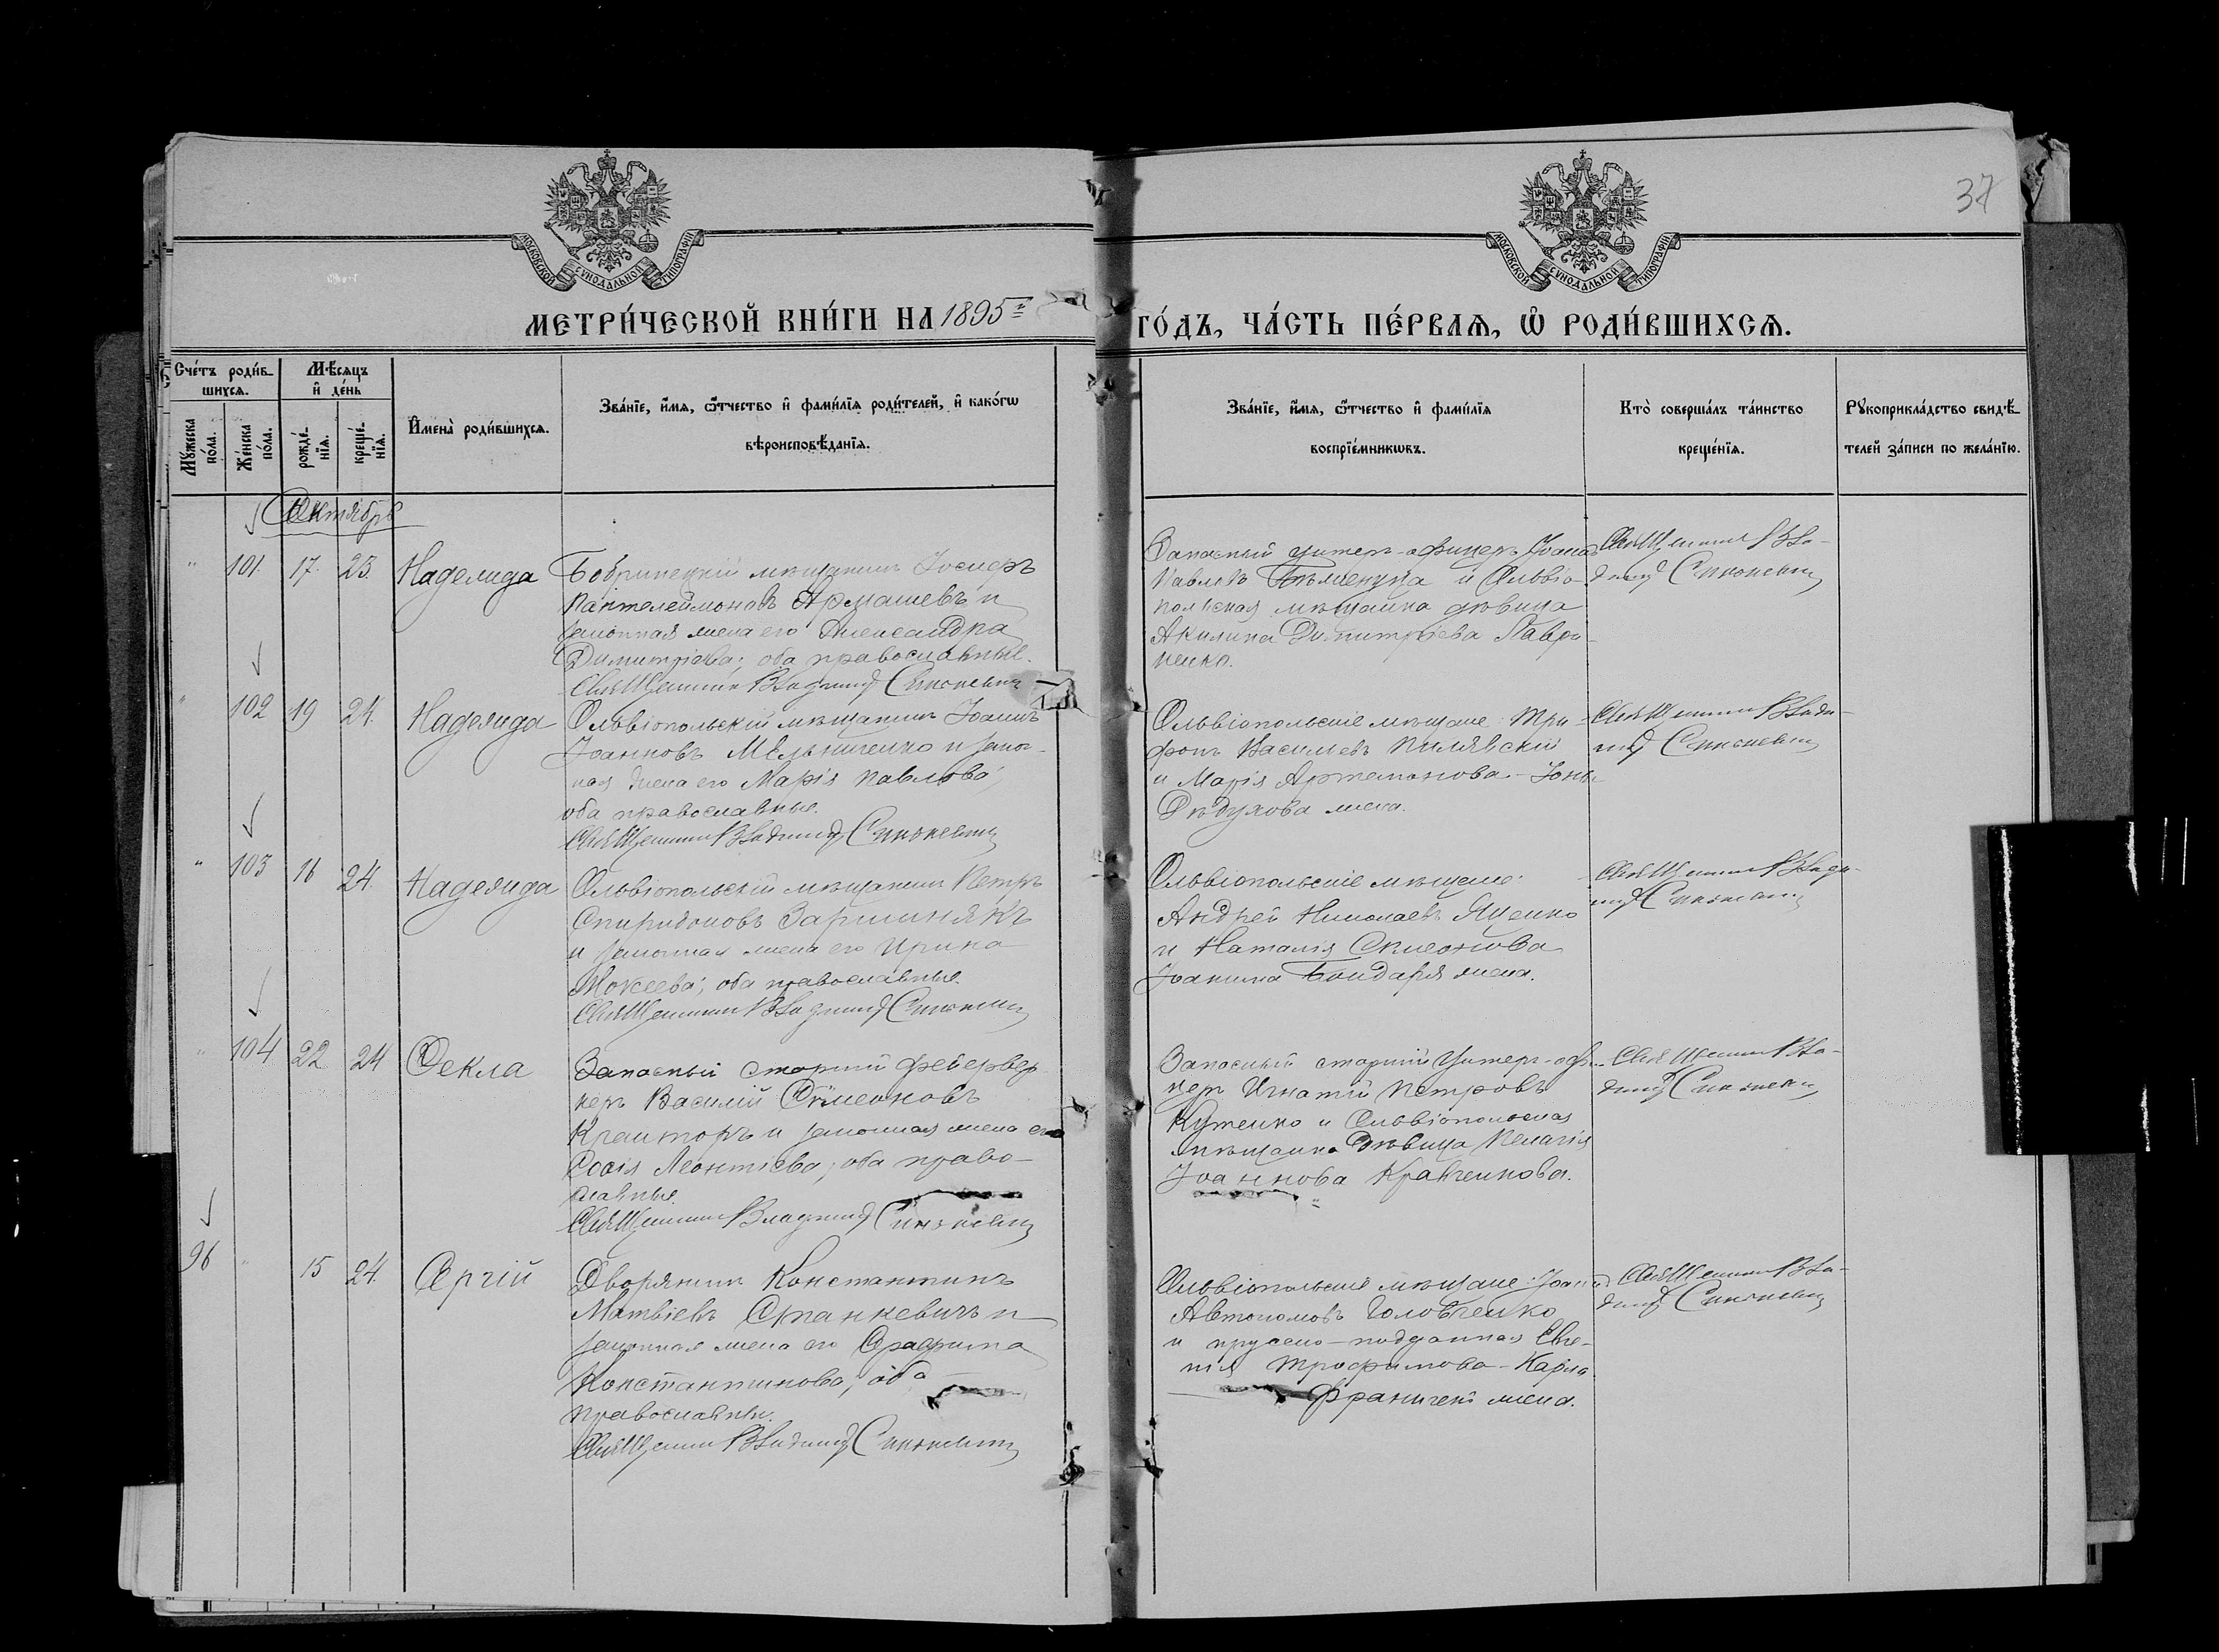 37
МОСКОВСКОЙ СѴНОДАЛЬНОЙ ТИПОГРАФІИ
МОСКОВСКОЙ СѴНОДАЛЬНОЙ ТИПОГРАФІИ
МЕТРИ́ЧЕСКОЙ КНИ́ГИ НА 1895 й
ГО́ДЪ, ЧА́СТЬ ПЕ́РВАѦ, Ѽ РОДИ́ВШИХСѦ.
Сче́тъ роди́в-
шихсѧ.
Мꙋ́жеска
по́ла.
Же́нска
по́ла.
Мѣ́сѧцъ
и҆ де́нь
рожде́-
нїѧ.
креще́-
нїѧ.
И҆мена̀ роди́вшихсѧ.
Зва́нїе, и҆́мѧ, ѻ҆́тчество и҆ фами́лїѧ роди́телей, и҆ како́гѡ
вѣроисповѣ́данїѧ.
Зва́нїе, и҆́мѧ, ѻ҆́тчество и҆ фами́лїѧ
воспрїе́мникѡвъ.
Кто̀ соверша́лъ та́инство
креще́нїѧ.
Рꙋкоприкла́дство свидѣ́-
телей за́писи по жела́нїю.
Октябрь
" 101 17. 23. Надежда
Бобринецкій мѣщанинъ Іосифъ
Пантелеймоновъ Армашевъ и
законная жена его Александра
Димитріева; оба православные.
Священникъ Владимір Синькевич
Запасный унтеръ-офицеръ Іоаннъ
Павловъ и Ольвіо-
польская мѣщанка дѣвица
Акилина Димитріева Гаври-
ненко.
Священникъ Вла-
димір Синькевич
" 102 19 24. Надежда
Ольвіопольскій мѣщанинъ Іоаннъ
Іоанновъ Мельниченко и закон-
ная жена его Марія Павлова;
оба православные.
Священникъ Владимір Синькевич
Ольвіопольскіе мѣщане: Три-
фонъ Васильевъ Пилявскій
и Марія Артемонова - Іоны
жена.
Священникъ Влади-
мір Синькевич
" 103 16 24. Надежда
Ольвіопольскій мѣщанинъ Петръ
Спиридоновъ Заршинякъ
и законная жена его Ирина
Мокеева; оба православные.
Священникъ Владимір Синькевич
Ольвіопольскіе мѣщане:
Андрей Николаевъ Яценко
и Наталія Симеонова
Іоанна Бондаря жена.
Священникъ Влади-
мір Синькевич
" 104 22 24 Ѳекла
Запасный старшій фейервер-
керъ Василій Симеоновъ
Кранторъ и законная жена его
Софія Леонтіева; оба право-
славные.
Священникъ Владимір Синькевич
Запасный старшій унтеръ-офи-
церъ Игнатій Петровъ
Куценко и Ольвіопольская
мѣщанка дѣвица Пелагія
Іоаннова Кравченкова.
Священникъ Вла-
димір Синькевич
96 " 15 24. Сергій
Дворянинъ Константинъ
Матвіевъ Станкевичъ и
законная жена его Серафима
Константинова; оба
православны.
Священникъ Владимір Синькевич
Ольвіопольскіе мѣщане: Іоаннъ
Автономовъ Головченко
и прусско-подданная Евге-
нія Трофимова - Карла
жена.
Священникъ Вла-
димір Синькевич